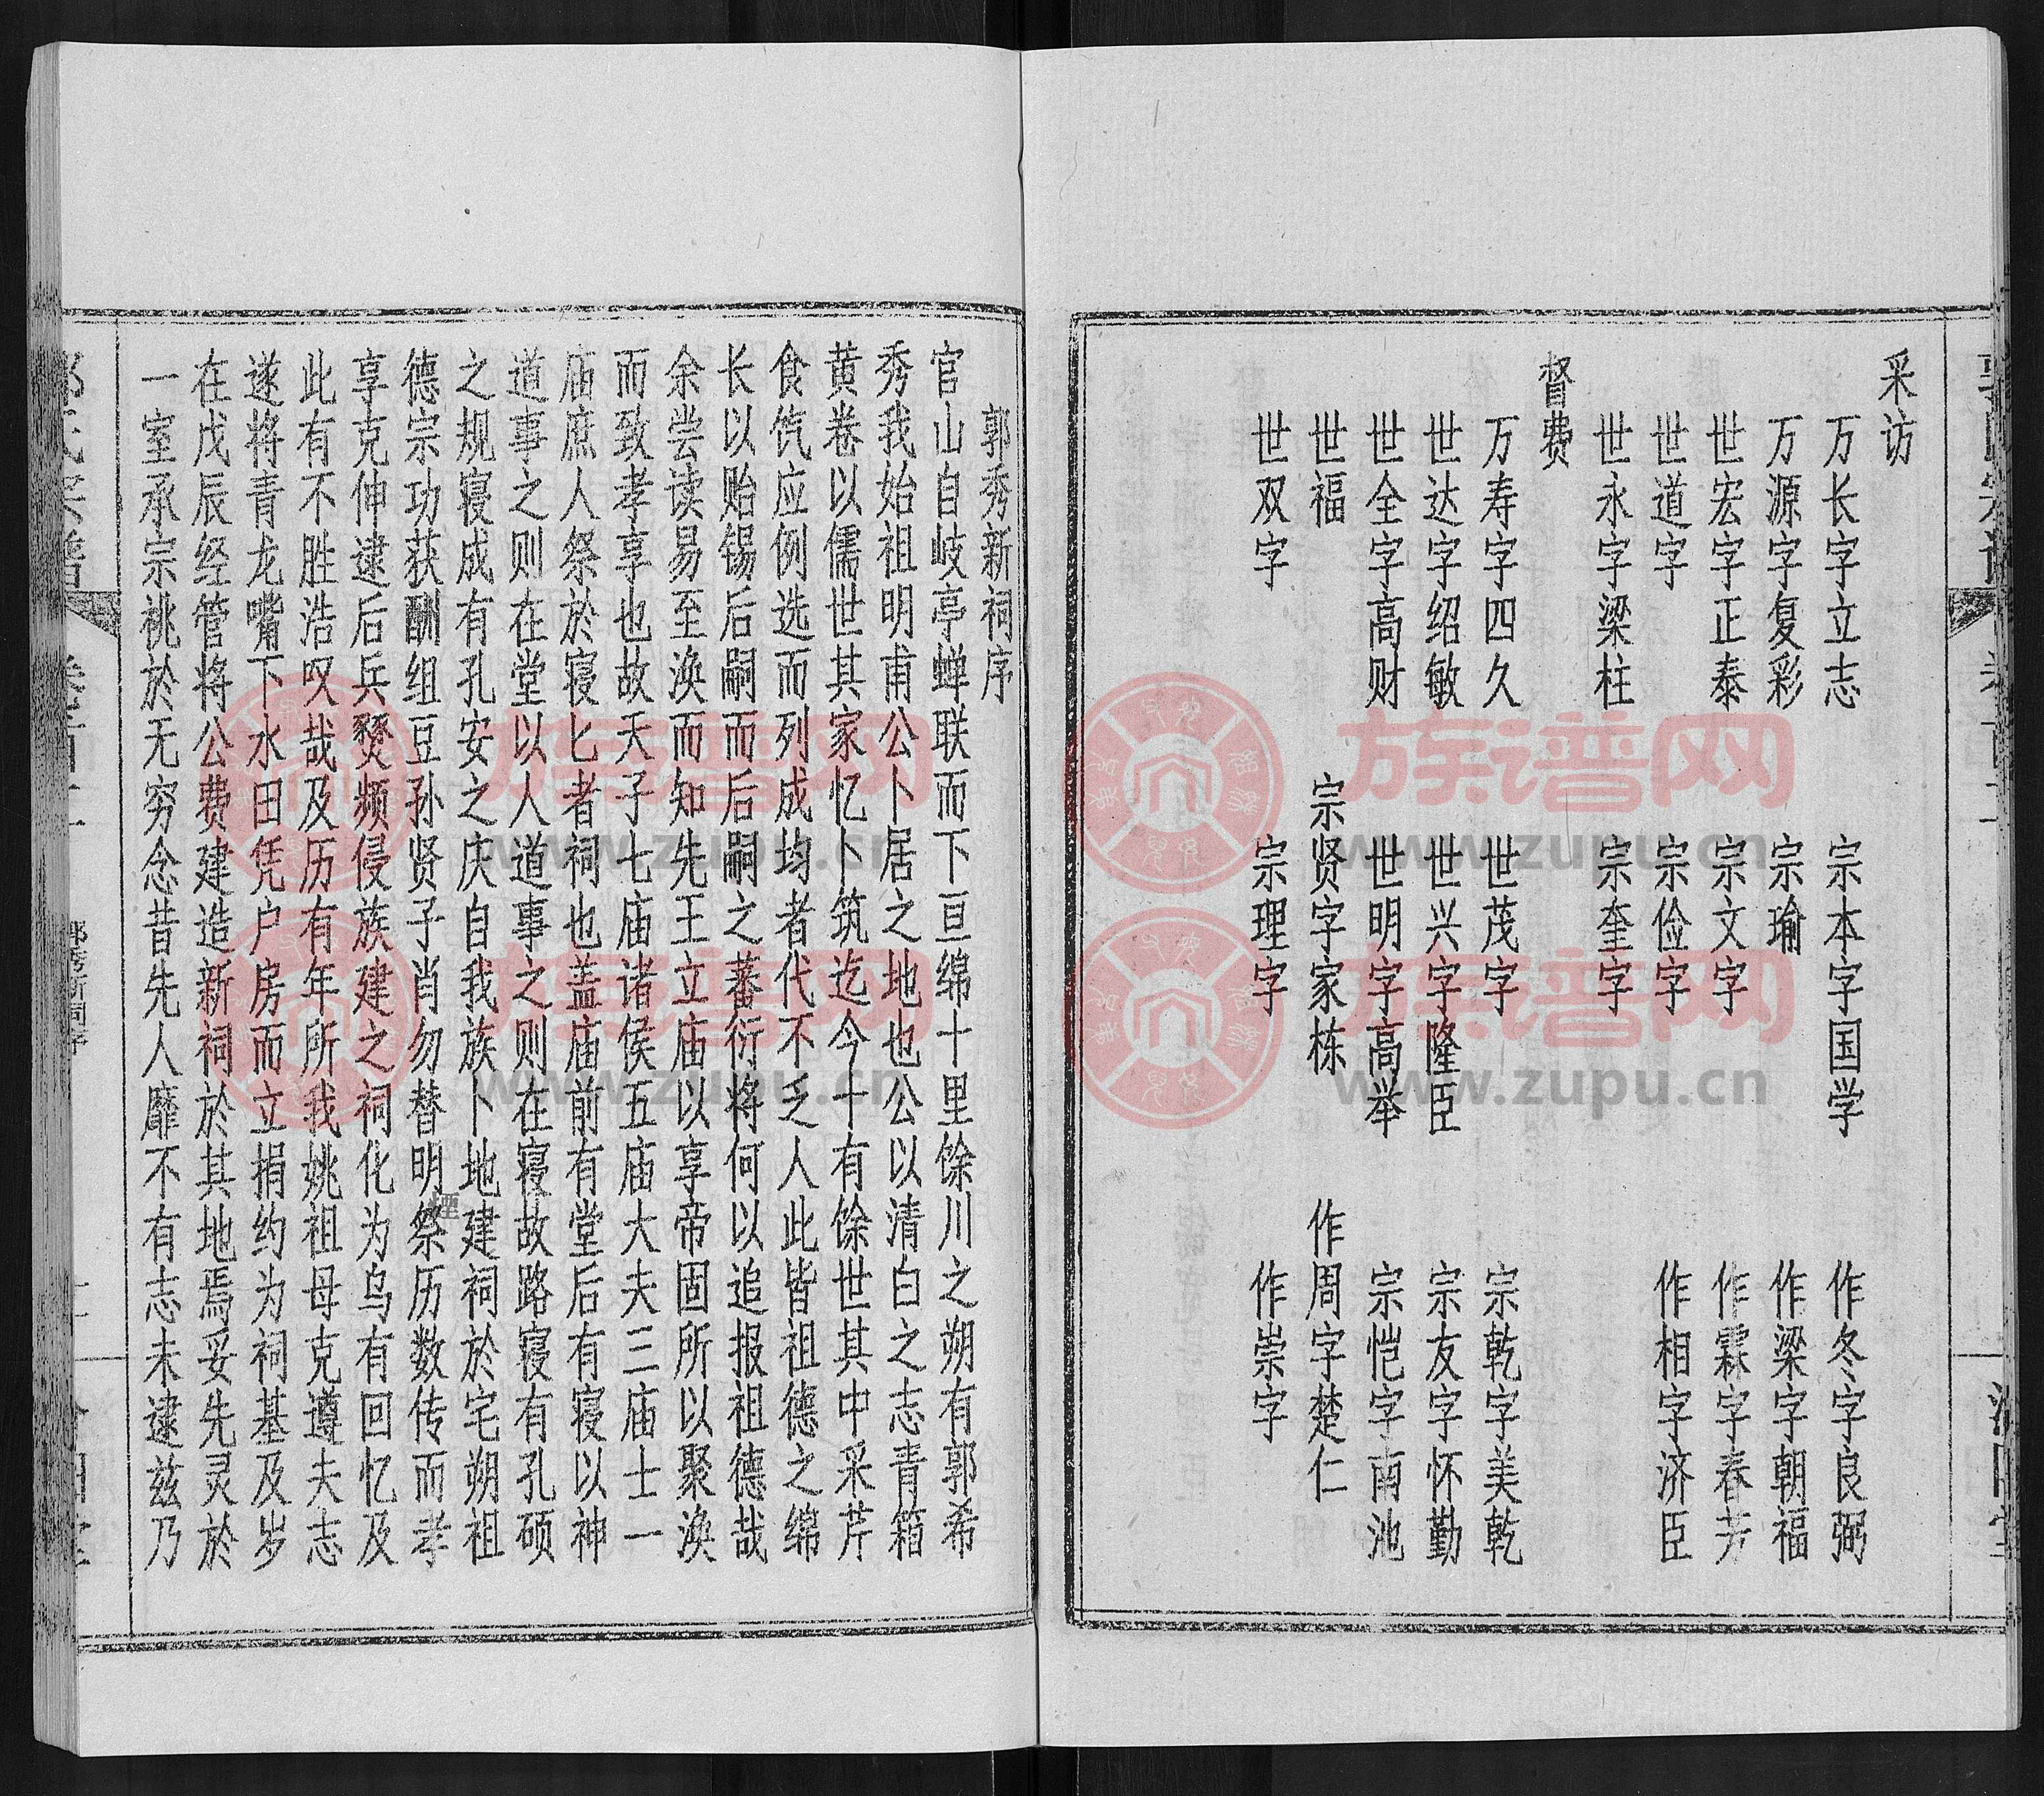 采访
万长字立志 宗本字国学 作冬字良弼
万源字复彩 宗瑜 作梁字朝福
世宏字正泰 宗文字 作霖字春芳
世道字 宗俭字 作相字济臣
世永字梁柱 宗奎字
督费
万寿字四久 世茂字 宗乾字美乾
世达字绍敏 世兴字隆臣 宗友字怀勤
世全字高财 世明字高举 宗恺字南池
世福 宗贤字家栋 作周字楚仁
世双字 宗理字 作崇字
郭秀新祠序
官山自岐亭蝉联而下亘绵十里馀川之朔有郭希
秀我始祖明甫公卜居之地也公以清白之志青箱
黄卷以儒世其家忆卜筑迄今十有馀世其中采芹
食饩应例选而列成均者代不乏人此皆祖德之绵
长以贻锡后嗣而后嗣之蕃衍将何以追报祖德哉
余尝读易至涣而知先王立庙以享帝固所以聚涣
而致孝享也故天子七庙诸侯五庙大夫三庙士一
庙庶人祭於寝匕者祠也盖庙前有堂后有寝以神
道事之则在堂以人道事之则在寝故路寝有孔硕
之规寝成有孔安之庆自我族卜地建祠於宅朔祖
德宗功获酬组豆孙贤子肖勿替明祭历数传而孝
禋
享克伸逮后兵燹频侵族建之祠化为乌有回忆及
此有不胜浩叹哉及历有年所我姚祖母克遵夫志
遂将青龙嘴下水田凭户房而立捐约为祠基及岁
在戊辰经管将公费建造新祠於其地焉妥先灵於
一室承宗祧於无穷念昔先人靡不有志未逮兹乃
郭氏宗谱
郭秀新祠序
族谱网
www.zupu.cn
族谱网
www.zupu.cn
族谱网
www.zupu.cn
族谱网
www.zupu.cn